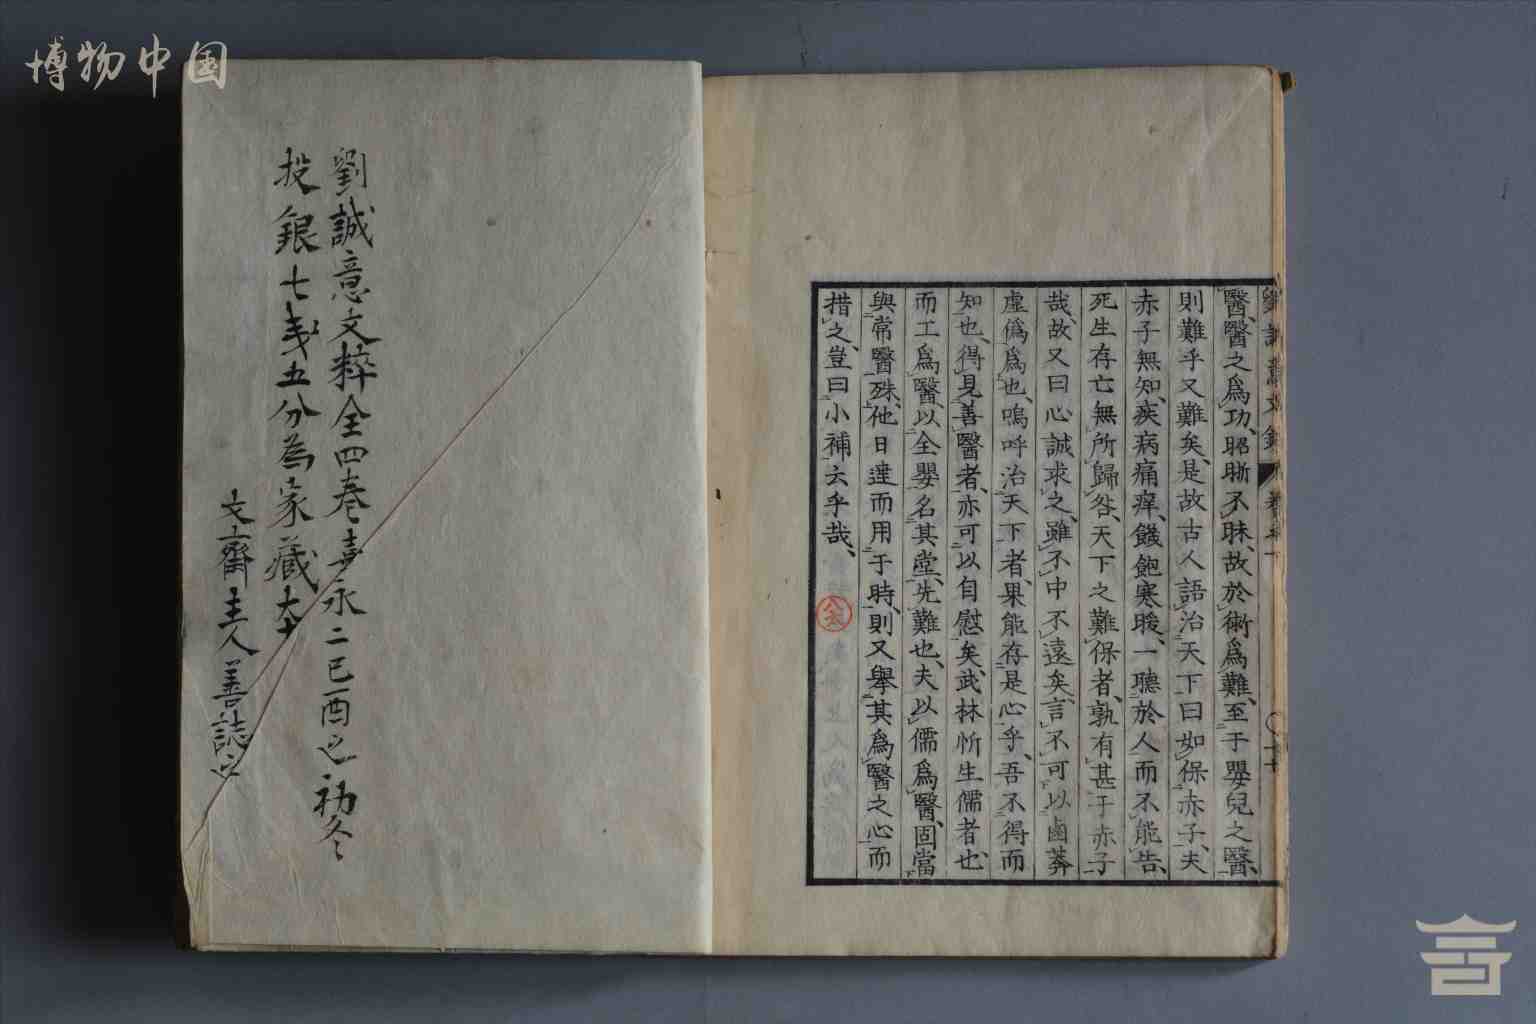 博物中国
劉誠意文鈔 卷之下
醫、醫之爲功、昭晣不昧、故於術爲難、至于嬰兒之醫、
則難乎又難矣、是故古人語治天下曰如保赤子、夫
赤子無知、疾病痛痒、饑飽寒暖、一聽於人而不能告、
死生存亡無所歸咎、天下之難保者、孰有甚于赤子
哉、故又曰心誠求之、雖不中不遠矣、言不可以鹵莽
虛僞爲也、嗚呼治天下者、果能存是心乎、吾不得而
知也、得見善醫者、亦可以自慰矣、武林忻生儒者也、
而工爲醫、以全嬰名其堂、先難也、夫以儒爲醫、固當
與常醫殊、他日達而用于時、則又擧其爲醫之心而
措之、豈曰小補云乎哉、
劉誠意文粹全四巻嘉永二己酉之初冬
投銀七匁五分為家藏
文齋主人善誌之